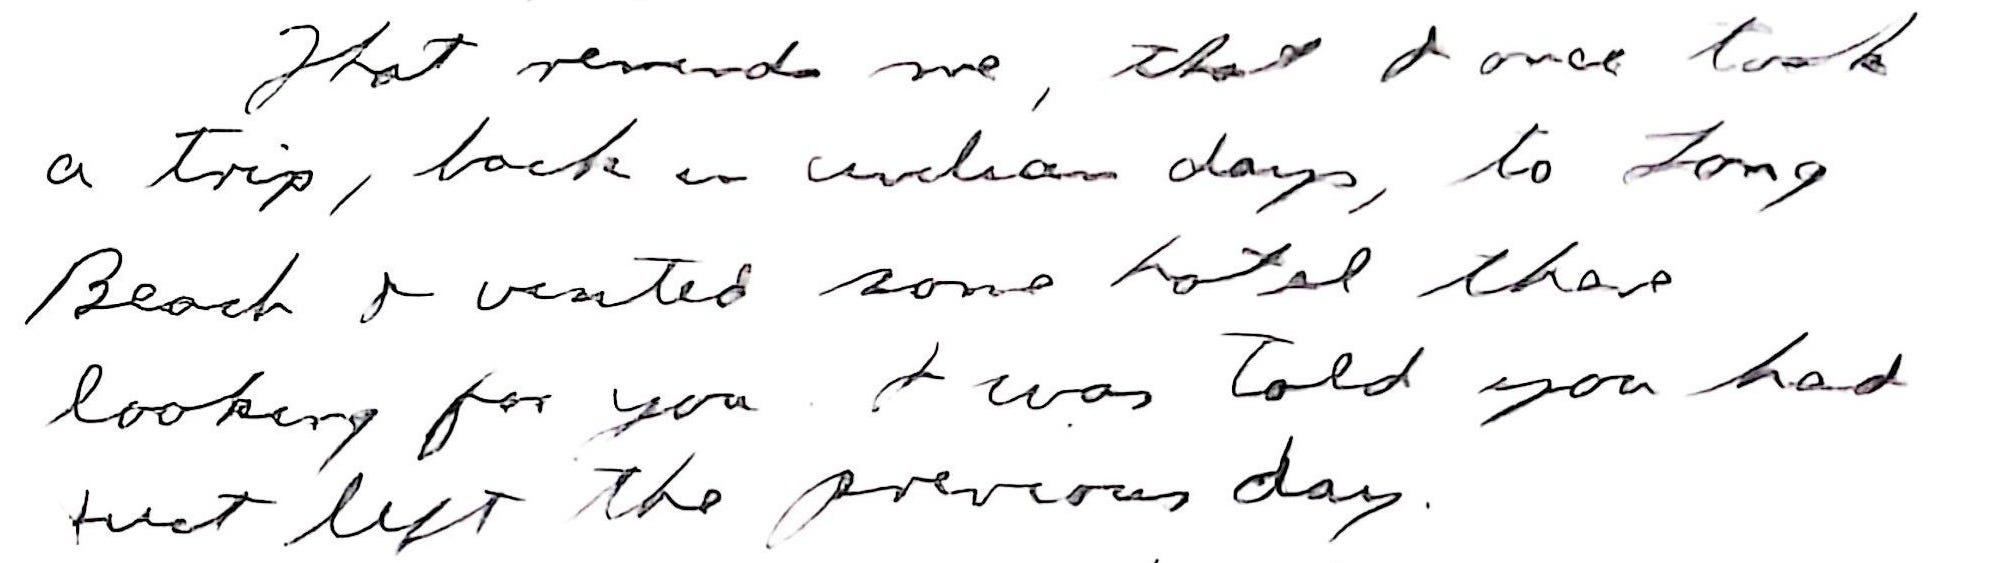 That reminds me, that I once took
a trip, back in civilian days, to Long
Beach & visited some hotel there
looking for you. I was told you had
just left the previous day.